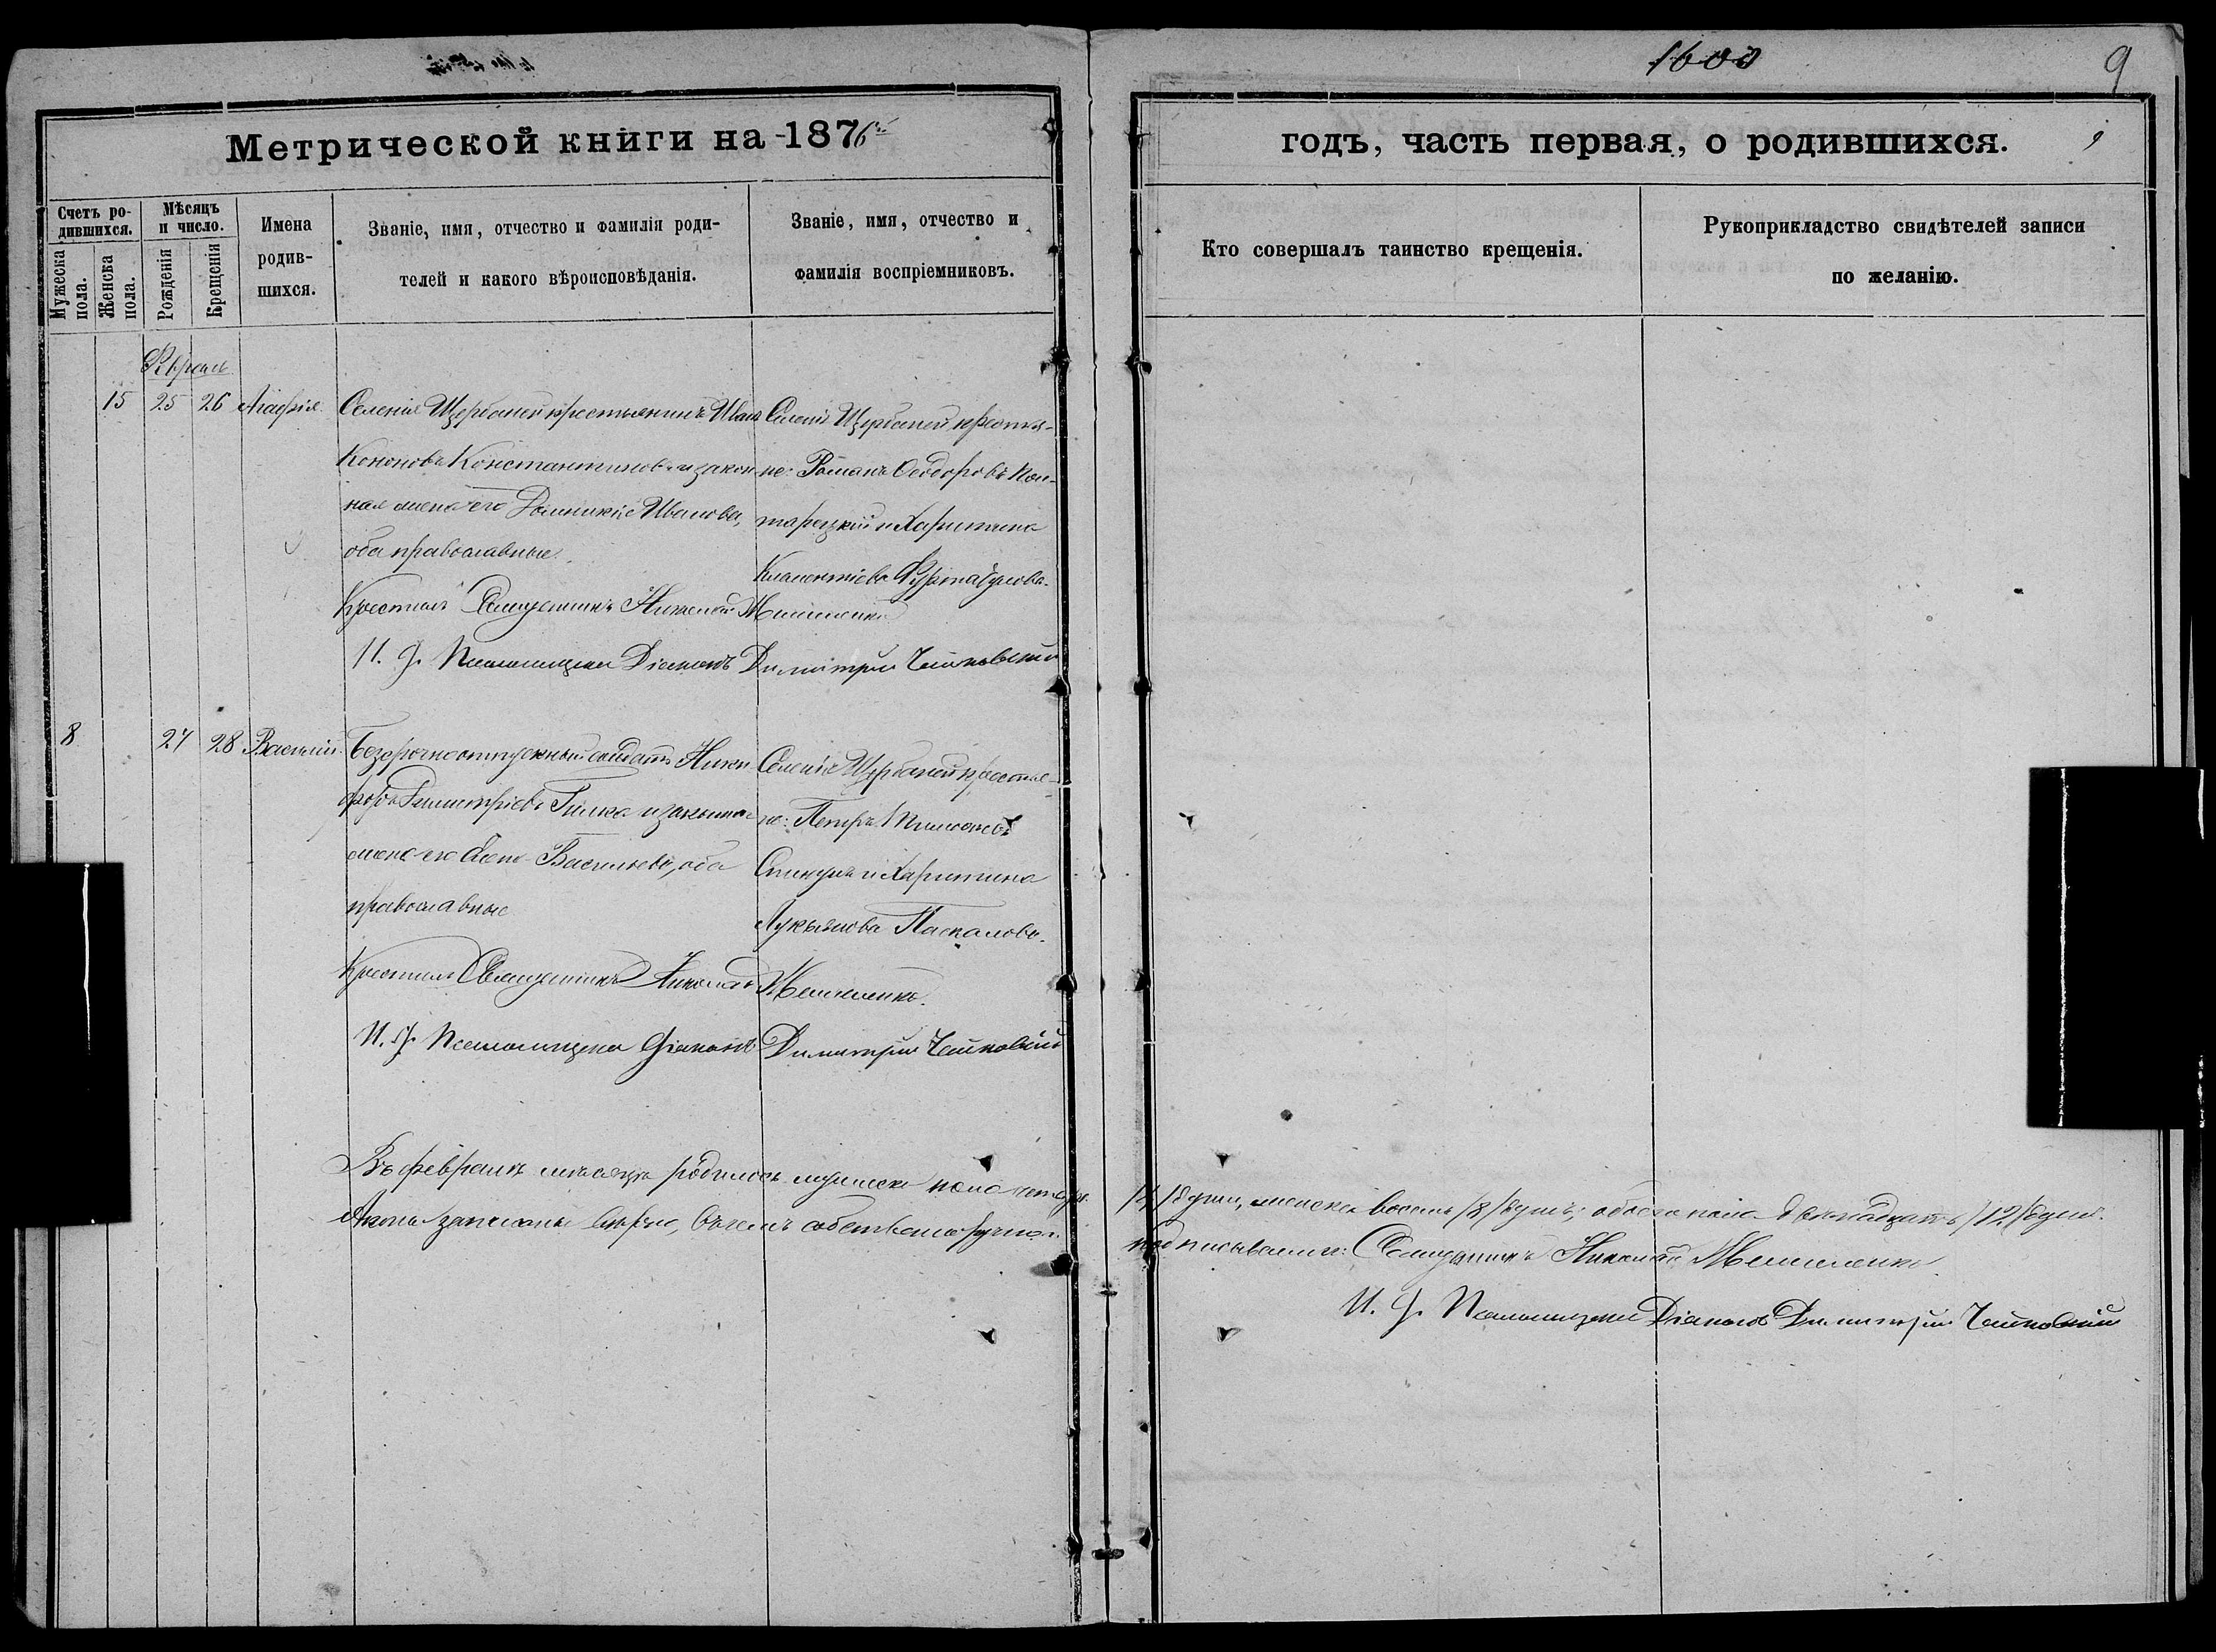 1600
9
Метрической книги на 1876й
годъ, часть первая, о родившихся.
9
Счетъ ро-
дившихся.
Мужеска
пола.
Женска
пола.
Мѣсяцъ
и число.
Рожденія
Крещенія
Имена
родив-
шихся.
Званіе, имя, отчество и фамилія роди-
телей и какого вѣроисповѣданія.
Званіе, имя, отчество и
фамилія воспріемниковъ.
Кто совершалъ таинство крещенія.
Рукоприкладство свидѣтелей записи
по желанію.
Февраль
15 25 26 Агафія
Селенія Щербаней крестьянинъ Иванъ
Кононовъ Константиновъ и закон
ная жена его Домникія Иванова,
оба православные.
Селенія Щербаней крестья-
не: Романъ Ѳеодоровъ
и Харитина
Климентіева
Крестилъ Священникъ Николай
И. д. Псаломщика Діаконъ Димитрій Чайковскій
8 27 28 Василій
Безсрочноотпускный солдатъ Ники
форъ Димитріевъ и законная
жена его Васильева, оба
православные
Селенія Щербаней крестья-
не: Петръ
и Харитина
Лукьянова Паскалова.
Крестилъ Священникъ Николай
И. д. Псаломщика Діаконъ Димитрій Чайковскій
Въ февралѣ мѣсяцѣ родилось мужеска пола четыре /4/ души, женска восемь /8/ душъ; обоего пола двѣнадцать /12/ душъ.
записаны вѣрно, въ чемъ собственноручно подписываемся: Священникъ Николай
И. д. Псаломщика Діаконъ Димитрій Чайковскій